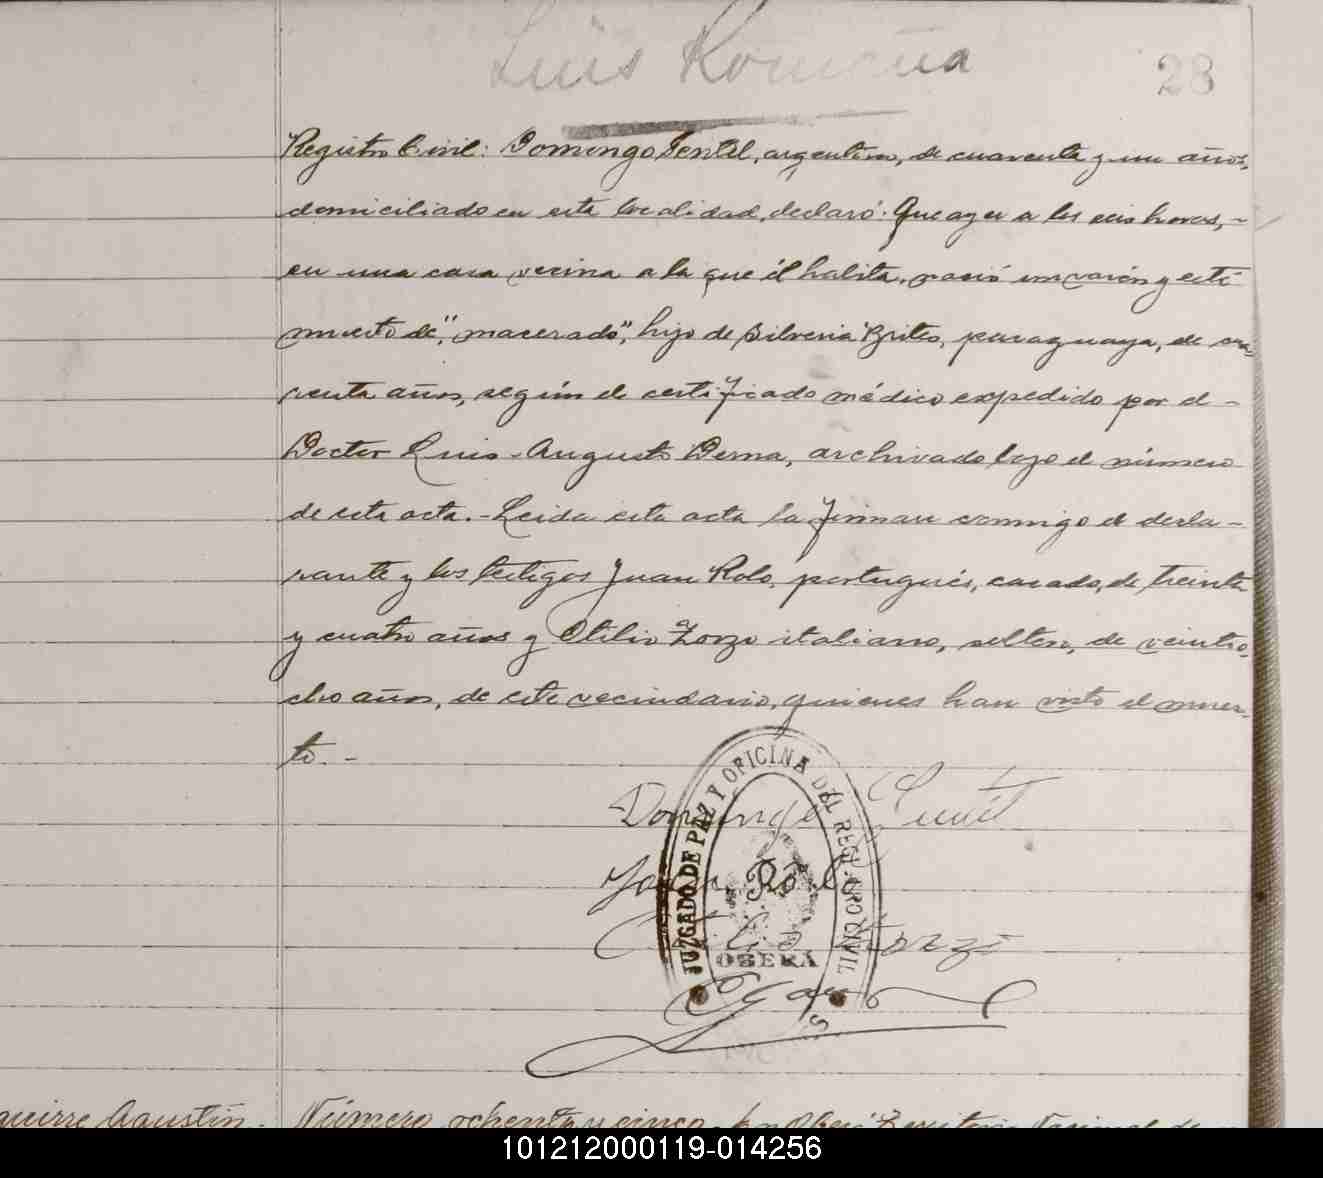 Luis Romaña
28
Registro Civil: Domingo Gentil, argentino, de cuarenta y un años,
domiciliado en esta localidad, declaró: Que ayer a las seis horas,-
en una casa vecina a la que él habita, nació un varón y está
muerto de "macerado", hijo de Silveria Brites, paraguaya, de cua-
renta años, según el certificado médico expedido por el-
Doctor Luis Augusto Derna, archivado bajo el número
de esta acta.- Leida esta acta la firman conmigo el decla-
rante y los testigos Juan Rolo, portugués, casado, de treinta
y cuatro años y Otilio Zorzo italiano, soltero, de veintio-
cho años, de este vecindario, quienes han visto el muer-
to.-
Domingo Gentil
JUZGADO DE PAZ Y OFICINA DEL REGISTRO CIVIL
Juan Rolo
Zorzo
OBERA
Aguirre Agustín.
Número ochenta y cinco. En Oberá Territorio Nacional de
101212000119-014256